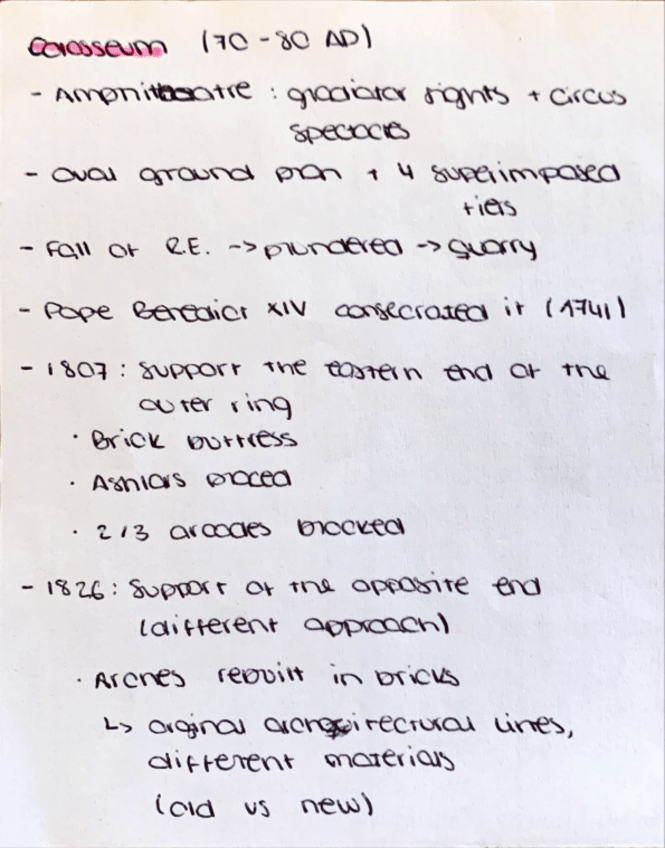 Colosseum (70-80 AD)
- Amphitheatre : gladiator fights + circus
spectacles
- Oval ground plan + 4 superimposed
tiers
- Fall of R.E. -> plundered -> quarry
- Pope Benedict XIV consecrated it (1741)
- 1807: Support the eastern end of the
outer ring
· Brick buttress
· Ashlars placed
· 2/3 arcades blocked
- 1826: Support of the opposite end
(different approach)
· Arches rebuilt in bricks
↳ original architectural lines,
different materials
(old vs new)